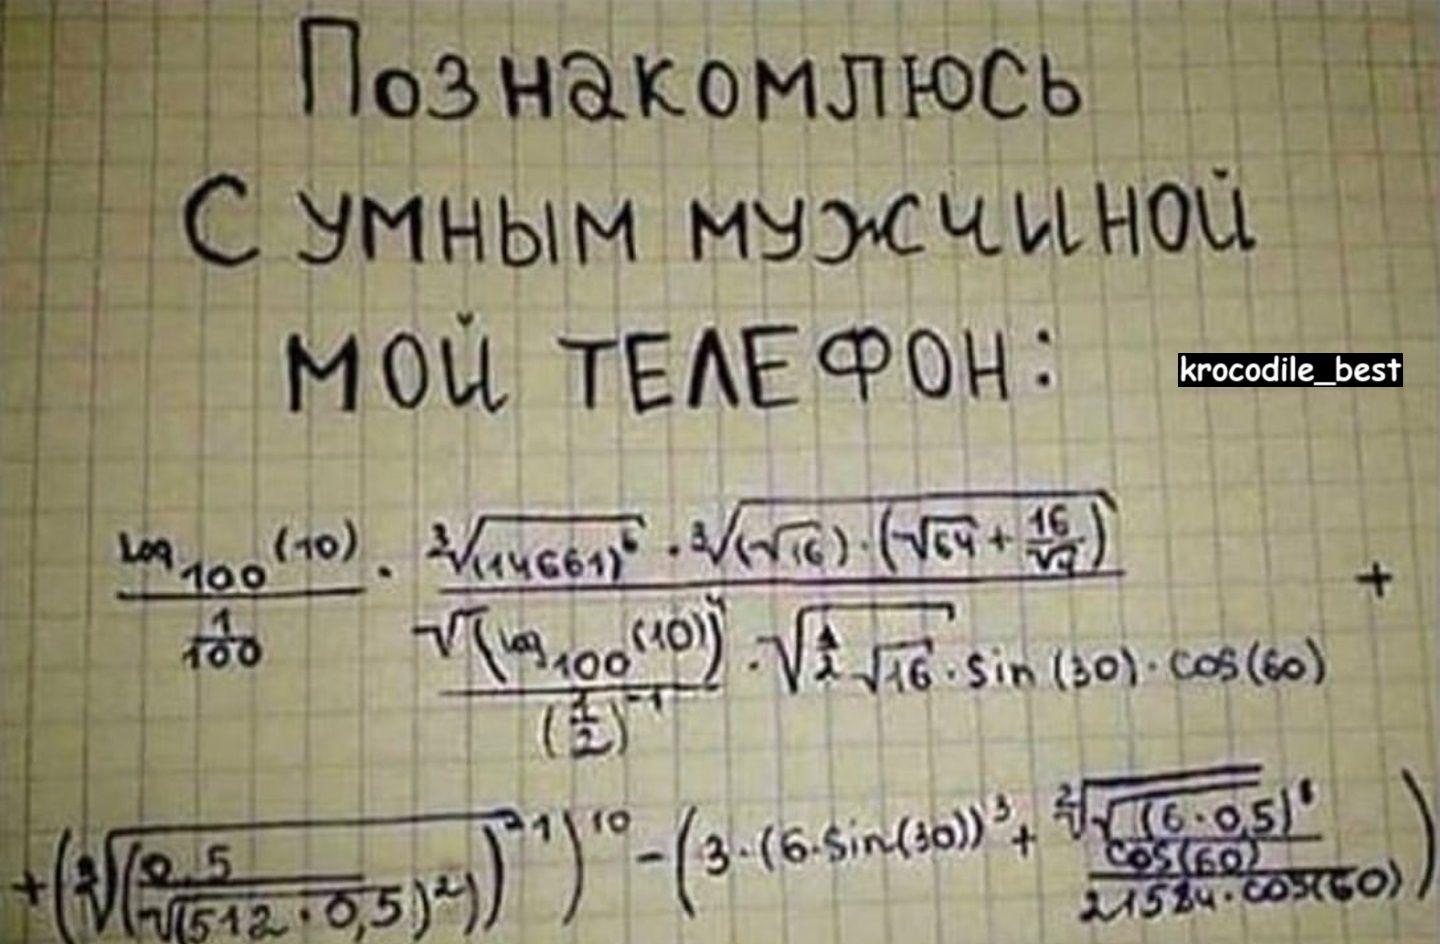 Познакомлюсь
с умным мужчиной
мой телефон:
krocodile_best
log₁₀₀(10) / (1/100) · (∛(14661)⁶ · ∛((√16) · (√64 + 16/√4))) / ((√(log₁₀₀(10))⁴ / (1/2)⁻¹) · √(1/2 √16) · sin(30) · cos(60)) +
+ (∛(0,5 / √((512 · 0,5)²))⁻¹)¹⁰ - (3 · (6 · sin(30))³ + ((²√√(6 · 0,5)⁸ / cos(60)) / 21584 · cos(60)))